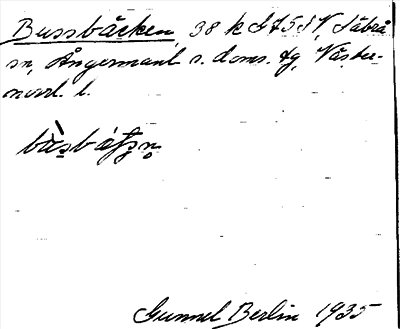 Bussbäcken, 38 k I 7 5 f V Säbrå
sn, Ångermanl. s. doms. tg, Väster-
norrl. l.
bùsbáʃʃn̥
Gunnel Berlin 1935